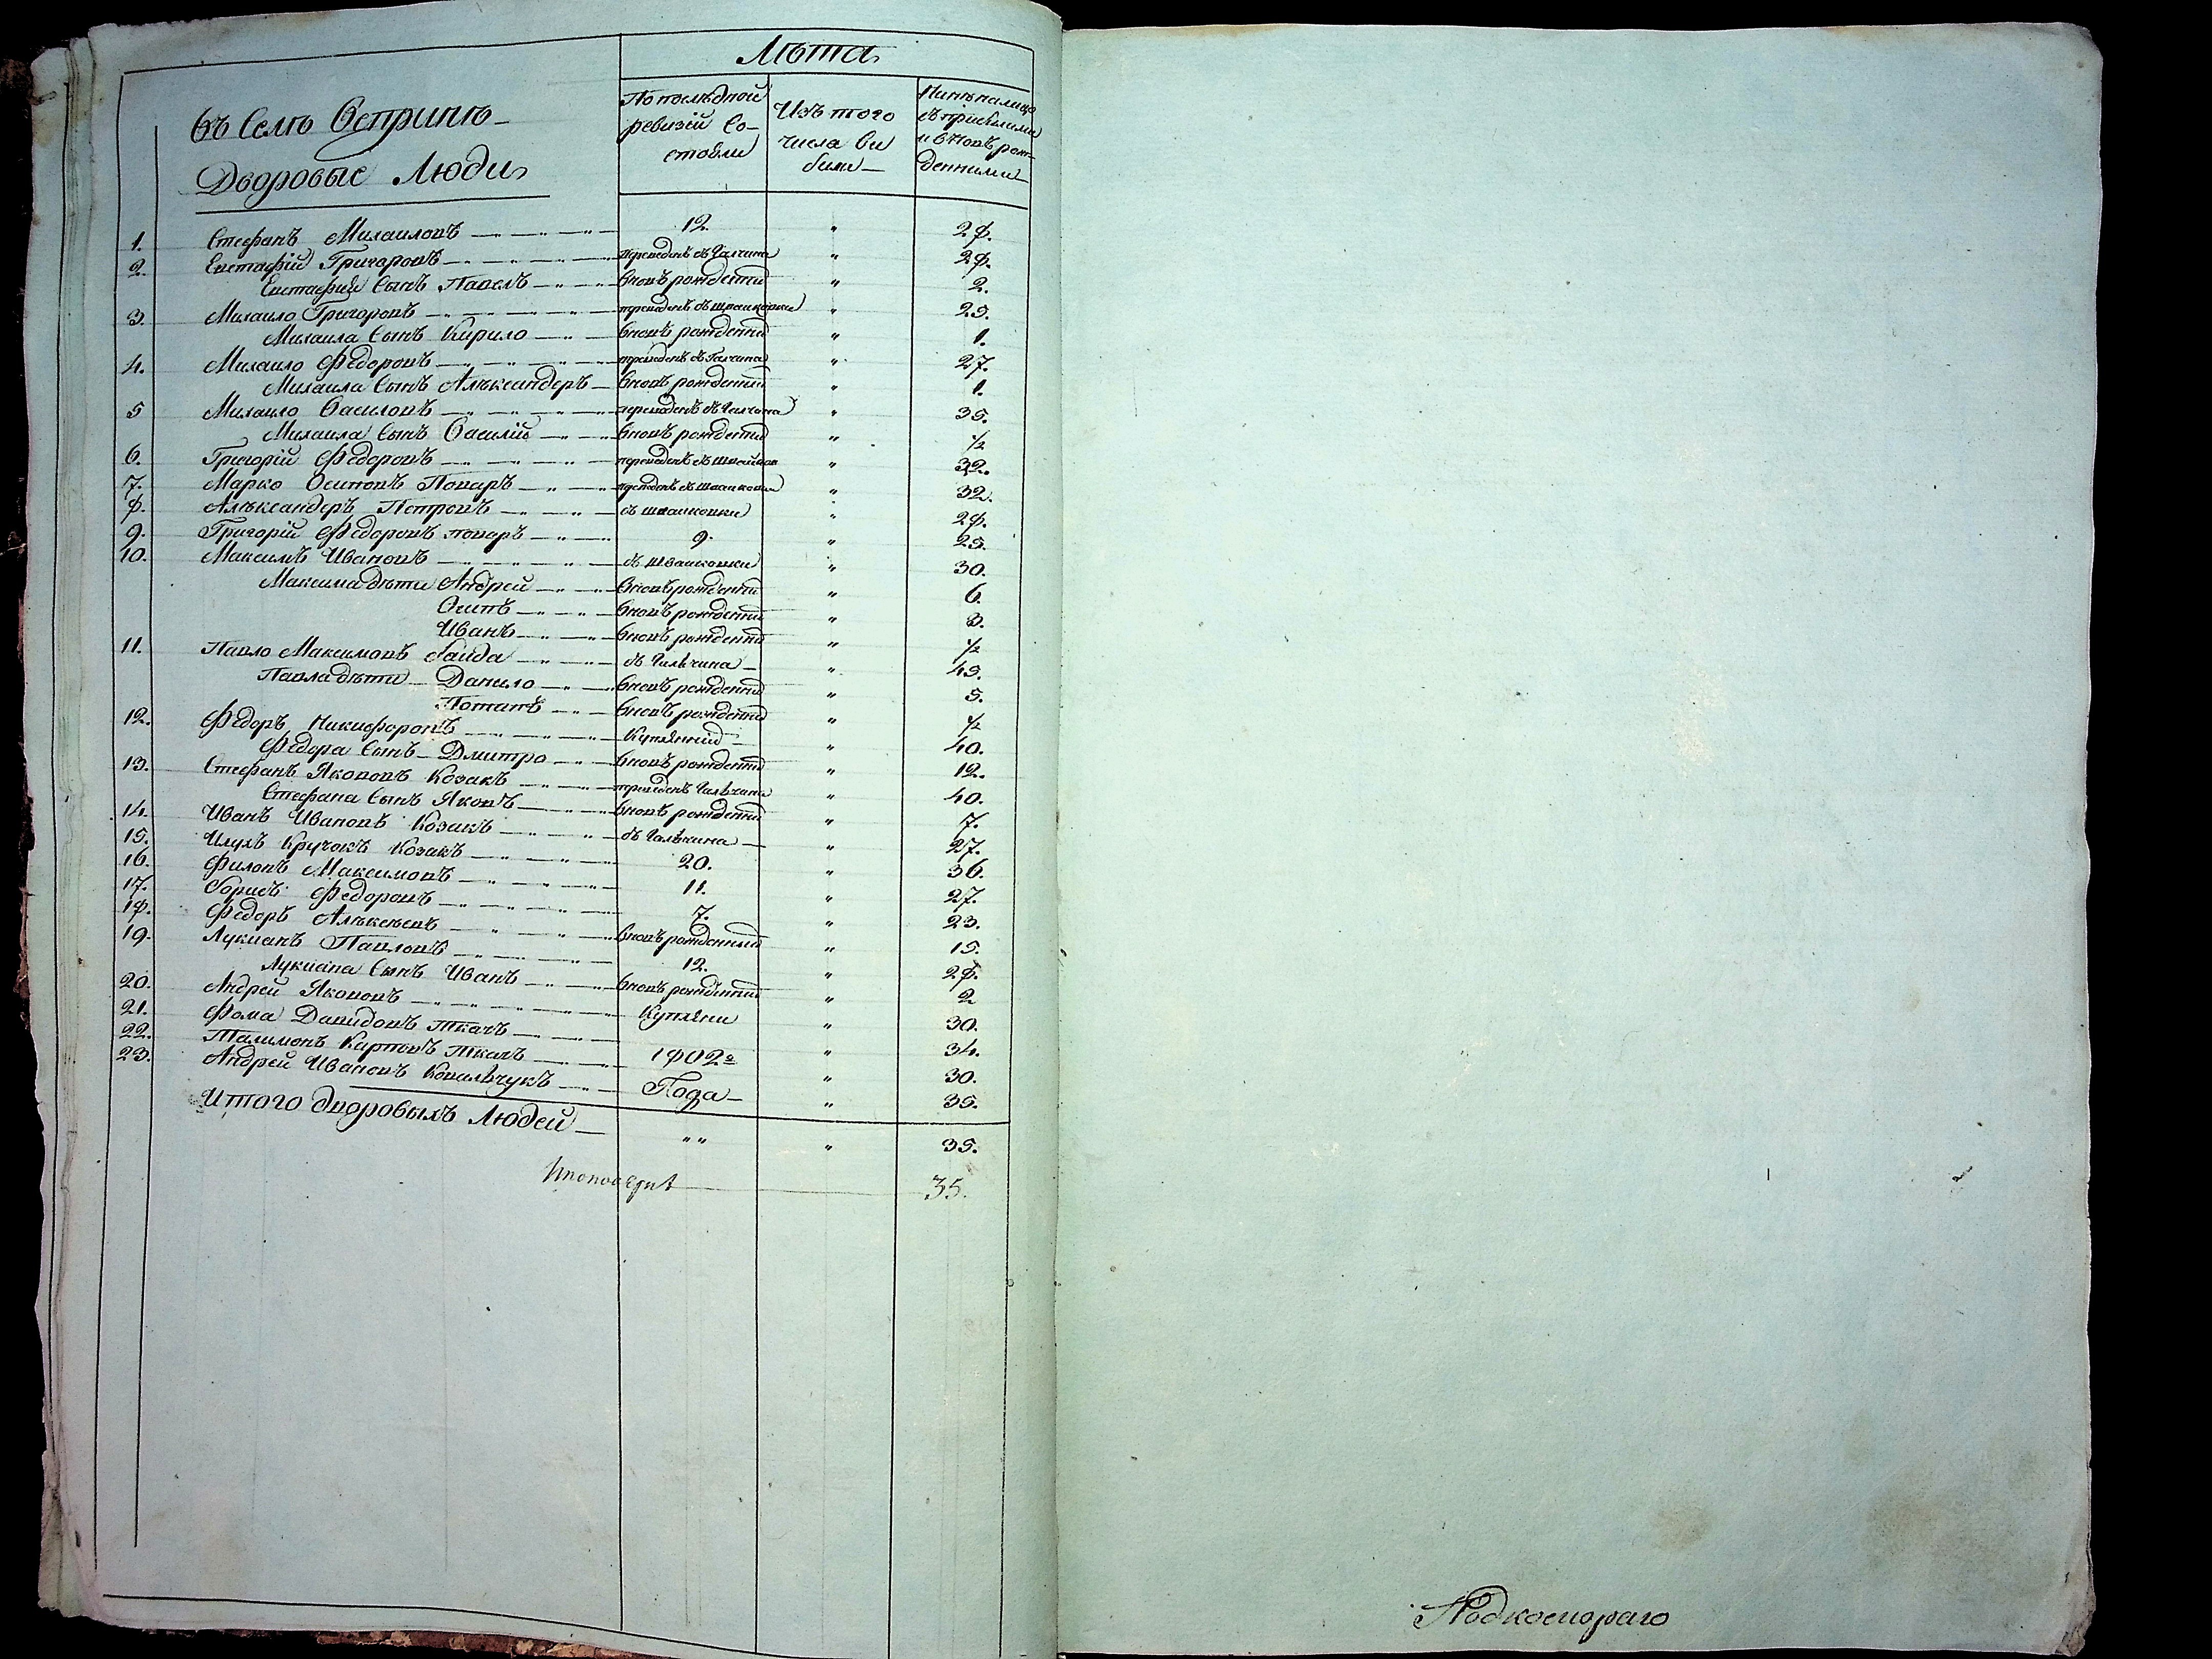 Лѣта
Въ Селѣ Вепринѣ
Дворовые Люди
По послѣдной ревизіи Состояли
Изъ того числа выбыли
Нинѣ налицо съ прибилими и вновъ рожденними
1. Стефанъ Михаиловъ 12. " 28.
2. Евстафій Григоровъ переведенъ съ Галчина " 28.
Евстафия Сынъ Павелъ вновъ рожденній " 2.
3. Михаило Григоровъ переведенъ съ " 25.
Михаила Сынъ Кирило вновъ рожденній " 1.
4. Михаило Федоровъ переведенъ съ Галчина " 27.
Михаила Сынъ Алѣксандеръ вновъ рожденній " 1.
5 Михаило Василовъ переведенъ съ Галчина " 35.
Михаила Сынъ Василій вновъ рожденній " ½
6. Григорій Федоровъ переведенъ съ " 32.
7. Марко Осиповъ Поваръ переведенъ съ " 32.
8. Алѣксандеръ Петровъ съ " 28.
9. Григорій Федоровъ поваръ 9. " 25.
10. Максимъ Ивановъ съ " 30.
Максима дѣти Андрей вновъ рожденній " 6.
Осипъ вновъ рожденній " 3.
Иванъ вновъ рожденній " ½
11. Павло Максимовъ Гайда съ Галчина " 45.
Павла дѣти Данило вновъ рожденній " 5.
Потапъ вновъ рожденній " ½
12. Федоръ Никифоровъ Куплянній " 40.
Федора Сынъ Дмитро вновъ рожденній " 12.
13. Стефанъ Якововъ Козакъ переведенъ Галчина " 40.
Стефана Сынъ Яковъ вновъ рожденній " 7.
14. Иванъ Ивановъ Козакъ съ Галчина " 27.
15. Кручокъ Козакъ 20. " 36.
16. Филонъ Максимовъ 11. " 27.
17. Борисъ Федоровъ 7. " 23.
18. Федоръ Алѣксѣевъ вновъ рожденный " 15.
19. Лукианъ Павловъ 12. " 28.
Лукиана Сынъ Иванъ вновъ рожденній " 2
20. Андрей Якововъ Купляни " 30.
21. Фома Давидовъ Ткачъ " 34.
22. Талимонъ Карповъ Ткачъ 1802го " 30.
23. Андрей Ивановъ Ковальчукъ Года " 35.
Итого дворовыхъ Людей " " " 35.
35.